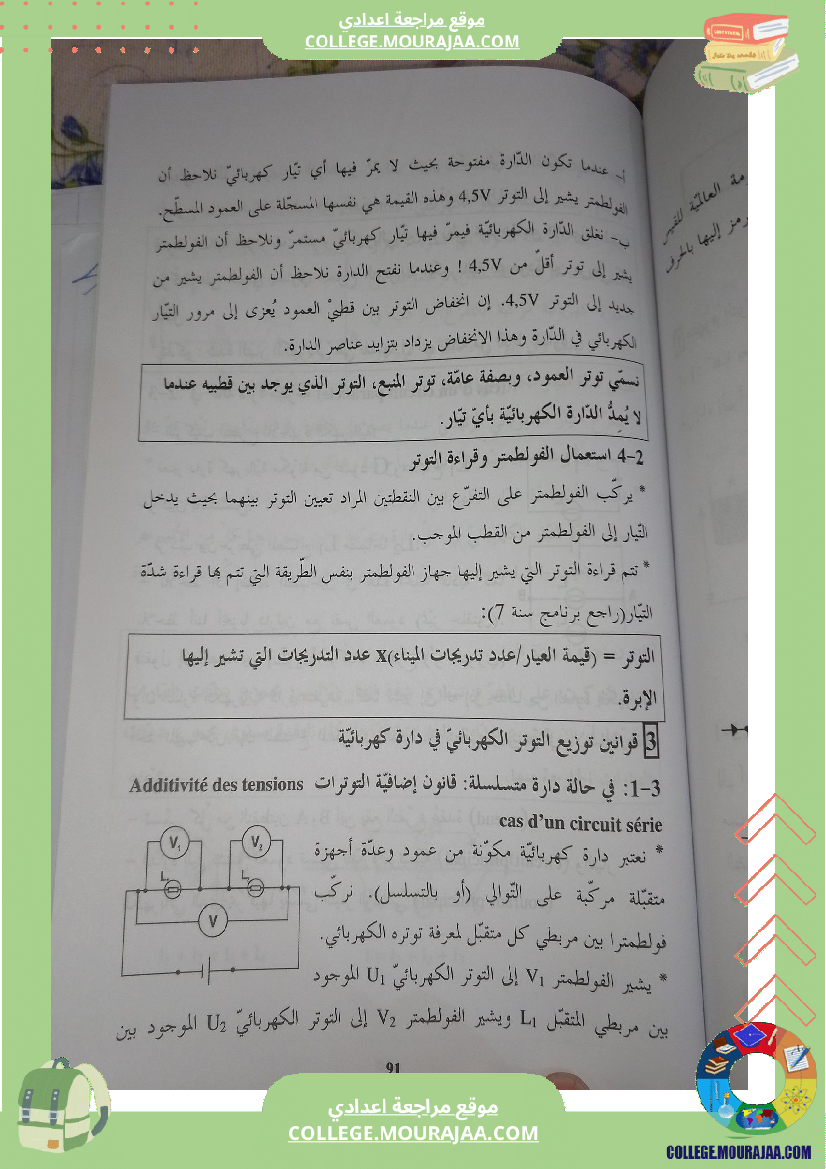 موقع مراجعة اعدادي
COLLEGE.MOURAJAA.COM
أ- عندما تكون الدّارة مفتوحة بحيث لا يمرّ فيها أي تيّار كهربائيّ نلاحظ أن
الفولطمتر يشير إلى التوتر 4,5V وهذه القيمة هي نفسها المسجّلة على العمود المسطّح.
ب- نغلق الدّارة الكهربائيّة فيمرّ فيها تيّار كهربائيّ مستمرّ ونلاحظ أن الفولطمتر
يشير إلى توتر أقلّ من 4,5V ! وعندما نفتح الدارة نلاحظ أن الفولطمتر يشير من
جديد إلى التوتر 4,5V. إن انخفاض التوتر بين قطبيْ العمود يُعزى إلى مرور التيّار
الكهربائي في الدّارة وهذا الانخفاض يزداد بتزايد عناصر الدارة.
نسمّي توتر العمود، وبصفة عامّة، توتر المنبع، التوتر الذي يوجد بين قطبيه عندما
لا يُمِدُّ الدّارة الكهربائيّة بأيّ تيّار.
4-2 استعمال الفولطمتر وقراءة التوتر
* يركّب الفولطمتر على التفرّع بين النقطتين المراد تعيين التوتر بينهما بحيث يدخل
التّيار إلى الفولطمتر من القطب الموجب.
* تتم قراءة التوتر التي يشير إليها جهاز الفولطمتر بنفس الطّريقة التي تتم بها قراءة شدّة
التيّار(راجع برنامج سنة 7):
التوتر = (قيمة العيار/عدد تدريجات الميناء)X عدد التدريجات التي تشير إليها
الإبرة.
3 قوانين توزيع التوتر الكهربائيّ في دارة كهربائيّة
3-1: في حالة دارة متسلسلة: قانون إضافيّة التوترات Additivité des tensions
cas d'un circuit série
* نعتبر دارة كهربائيّة مكوّنة من عمود وعدّة أجهزة
متقبّلة مركّبة على التّوالي (أو بالتسلسل). نركّب
فولطمترا بين مربطي كل متقبّل لمعرفة توتره الكهربائي.
* يشير الفولطمتر V1 إلى التوتر الكهربائيّ U1 الموجود
بين مربطي المتقبّل L1 ويشير الفولطمتر V2 إلى التوتر الكهربائيّ U2 الموجود بين
V1 V2
L1 L2
V
91
مة العالميّة للقيس
رمز إليها بالحرف
موقع مراجعة اعدادي
COLLEGE.MOURAJAA.COM
COLLEGE.MOURAJAA.COM